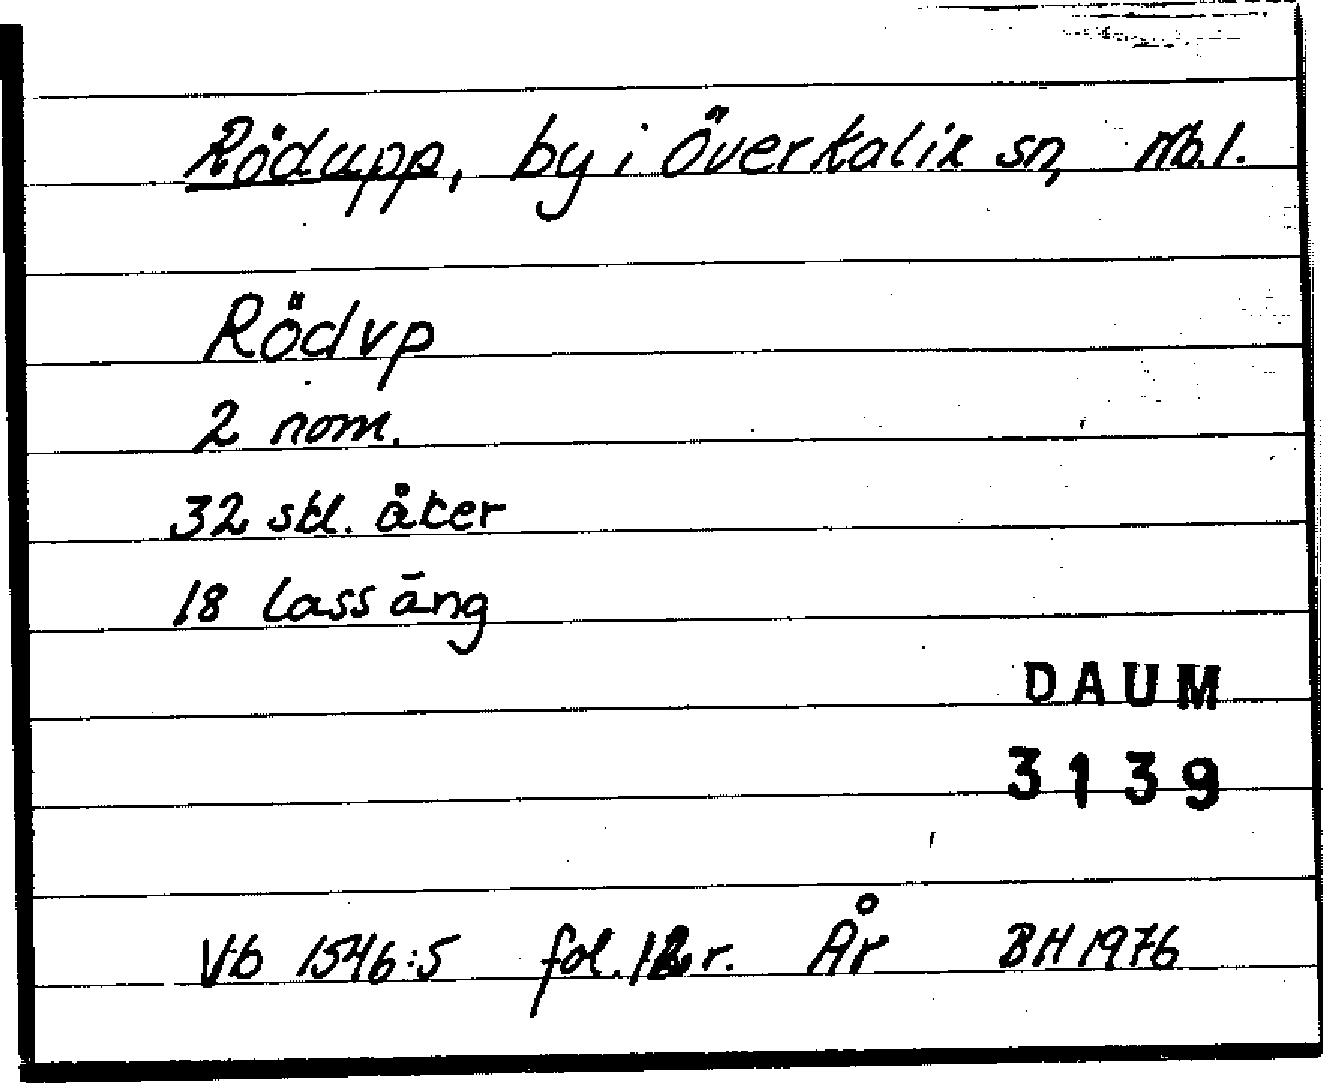 Rödupp, by i Överkalix sn, Nb.l.
Rödvp
2 nom.
32 skl. åker
18 lass äng
DAUM
3139
Vb 1546:5 fol. 12 r. År BH 1976